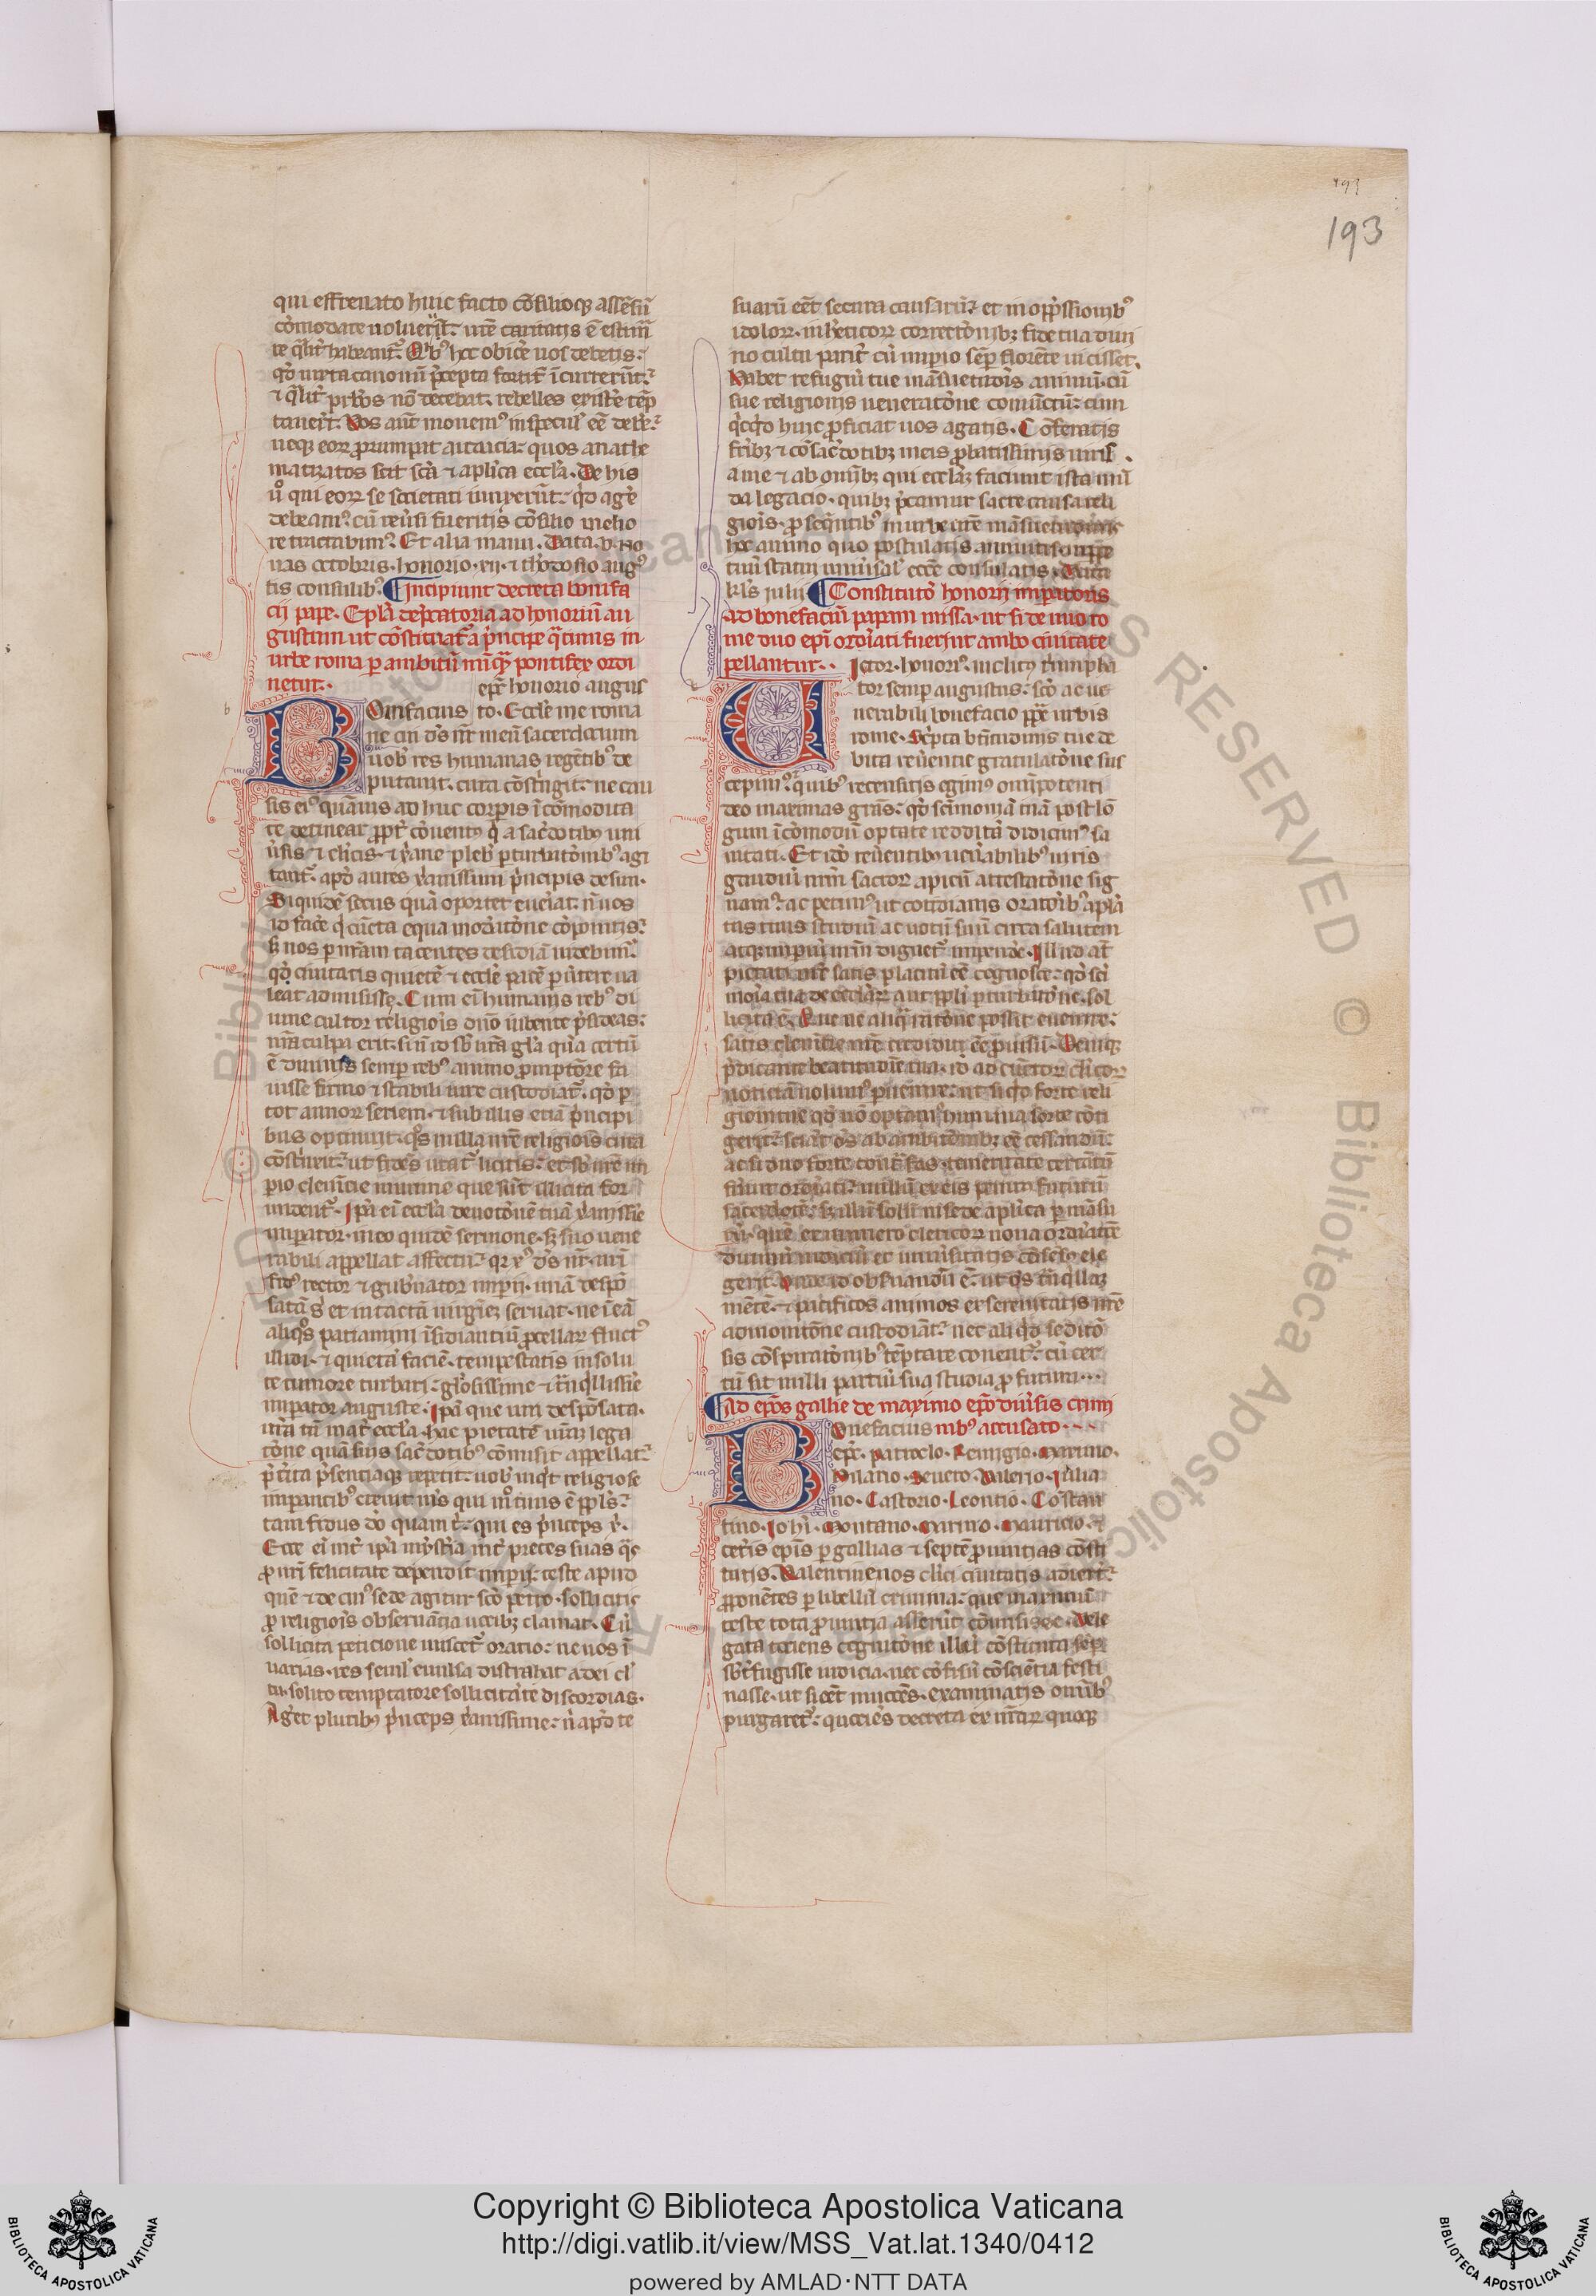 193
193
qui effrenato huic facto cōsilioqȝ assēsū
cōmodare noluerīt. ur̄e caritatis ē estim̄
te ql̄it habeant᷑. Qͥbꝰ hec obicͤ uos debetis.
qd̄ iuxta canonū p̄cepta fortit᷑ īcurrerūt.
⁊ ql̄it p̄sbr̄os nō decebat. rebelles existe᷑ tēp
tauer̄t. Nos aut̄ monemꝰ īspecul̓ eē debe᷑.
neqȝ eoꝝ prorumpat audacia. quos anathe
matizatos scit sc̄a ⁊ aplīca eccl̄a. De his
u͛o qui eoꝝ se societati iunxerūt. qͥd age᷑
debeamꝰ. cū reūsi fueritis cōsilio melio
re tractabimꝰ. Et alia manu. Data. v. no
nas octobris. honorio. xii. ⁊ th̄odosio augꝰ
tis consulibꝰ. ¶ Incipiunt decreta bonifa
cii pape. Epl̄a dep̄catoria ad honoriū au
gustum ut cōstituat᷑ a p̄ncipe qͣtinus in
urbe roma ꝑ ambitū nūqͣꝫ pontifex ordi
netur.
ep̄c honorio augus
Onifacius to. Eccl̄e me roma
ne cui dꝰs nr̄ meū sacerdocium
uob̓ res humanas regētibꝰ de
putauit. cura cōstringit. ne cau
sis eiꝰ quāuis adhuc corꝑis īcōmodita
te detinear ꝓpt᷑ cōuentꝰ qͥ a sac̄dotibꝰ uni
ūsis ⁊ cl̄icis. ⁊ xͥane pleb̓ ꝑturbatōnibꝰ agi
tant᷑. apd̓ aures xͥanissimi p̄ncipis desim.
Siquidē secus quā oportet eueīat. ñ uos
id face᷑ qͥ cūcta equa mod̓atōne cōponitis.
sꝫ nos ꝑ nr̄am tacentes desidiā uidebimꝰ.
qd̓ ciuitatis quietē ⁊ eccl̄e pacē ꝑūtere ua
leat admisisse. Cum eī humanis rebꝰ di
uine cultor religiois dn̄o iubente p̄sideas.
nr̄a culpa erit. si nō sb̓ ur̄a gl̄a qͥa certū
ē diuinis semꝑ rebꝰ animo promptōre fa
uisse firmo ⁊ stabili iure custodiat᷑. qd̓ ꝑ
tot annoꝝ seriem. ⁊ sub illis etiā p̄ncipi
bus optinuit. qͦs nulla ur̄e religiois cura
cōstrinxit. ut fides utat᷑ licitis. et sb̓ ur̄e im
ꝑio clemēcie minime que sūt illicita for
mident᷑. Ip̄a eī eccl̄a deuotōnē tuā xͥanissie
imꝑator. meo quidē sermone. sꝫ suo uene
rabili appellat affectu. qꝛ xꝰ dꝰs nr̄. uri
fidꝰ rector ⁊ gub̓nator imꝑii. unā despō
satā sͥ et intactā uirginē seruat. ne ī eā
aliqͦs patiamini īsidiantiū ꝓcellaꝝ fluctꝰ
illidi. ⁊ quietā faciē. tempestatis insolu
te tumore turbari. gl̄osissime ⁊ trāqͥllissie
imꝑator auguste. Ip̄a que um̄ despōsata.
ur̄a tn̄ mat᷑ eccl̄a. hac pietatē ur̄aꝫ lega
tōne quā suis sac̄dotibꝰ cōmisit appellat.
p̄t̓ita p̄sentiaqȝ repetit. uob̓ inqͥt religiose
imꝑantibꝰ creuit meꝰs qui nͦ tuus ē ppl̄s.
tam fidus do quam t̓. qui es p̄nceps xͥ.
Ecce eī int᷑ ip̄a mysͭia int᷑ preces suas qͣs
ꝓ uri felicitate dependit imꝑii. teste apud
quē ⁊ de cuiꝰ sede agitur sc̄o petro. sollicitis
ꝓ religiois obseruātia uocibȝ clamat. Cū
sollicita peticione miscet᷑ oratio. ne uos ī
uarias. res semel euulsa distrahat a dei cl̓
tu. solito temptatore sollicitāte discordias.
Aget pluribꝰ p̄nceps xͥanissime. ñ apd̓ te
suarū eēt secura causarū. et in opp̄ssionibꝰ
idoloꝝ. in heticoꝝ correctōnibȝ fide tua diui
no cultu parit᷑ cū imꝑio sēꝑ florēte uicisset.
Habet refugiū tue māsuetudīs animū. cū
sue religionis ueneratōne coniūctū. cum
qͥcqͥd huic ꝓficiat uos agatis. Cōferatis
fr̄ibȝ ⁊ cōsac̄dotibȝ meis ꝓbatissimis uiris.
a me ⁊ ab omībȝ qui eccl̄iaꝫ faciunt ista mā
da legacio. quibȝ p̄camur sacre causa reli
giois. ꝓseqͣntibꝰ in urbe ur̄e māsuetudinis
hoc animo quo postulatis annuite. in ppe
tuū statū uniūsal̓ eccē consulatis. Data
kl̄s julii ¶ Constitutō honorii imꝑatoris
ad bonefaciū papam missa. ut si deinceps ro
me duo ep̄i ordīati fuerint ambo ciuitate
pellantur.
Ictor. honoriꝰ. inclitꝰ triumpha
tor semꝑ augustus. sc̄o ac ue
nerabili bonefacio pp̄e urbis
rome. Sc̄pta bt̄itudinis tue de
bita reūentie gratulatōne sus
cepimꝰ. quibꝰ recensitis egimꝰ omīpotenti
deo maximas gr̄as. qd̓ sc̄imoniā tuā post lō
gum īcōmodū optate redditā didicimꝰ sa
nitati. Et ido reūentibꝰ uen̓abilibꝰ uiris
gaudiū nr̄m sactoꝝ apicū attestatōne sig
namꝰ. ac petimꝰ ut cotidianis oratōibꝰ aplā
tus tuus studiū ac uotū suū circa salutem
atqȝ imꝑiū nr̄m dignet᷑ impende᷑. Illud at̄
pietati nr̄e satis placitū eē cognosce. qd̓ sc̄i
moīa tua de eccl̄iaꝝ aut ppl̄i ꝑturbatōne. sol
licita ē. Que ne aliqͣ ratōne possit euenire.
satis clemētie nr̄e credidit eē ꝓuisū. Deniqȝ
p̄dicante beatitudīe tua. id ad cūctoꝝ cl̄icoꝝ
noticiā uolumꝰ ꝑuenire. ut si qͥd forte reli
gioni tue qd̓ nō optamꝰ humana sorte cōti
gerit. sciāt oꝰs ab ambitōnibȝ eē cessandū.
ac si duo forte cont̓ fas. temeritate certātū
fūint ordīati. nullū ex eis penitꝰ futurū
sacerdotē. sꝫ illū solū in sede aplīca ꝑmāsu
rū. quē ex numero clericoꝝ noua ordīatōe
diuinū iudiciū et uniūsitatis cōsensꝰ ele
gerit. Unde id obseruandū ē. ut oꝰs trāqͥllaꝫ
mētē. ⁊ pacificos animos ex serenitatis nr̄e
admonitōne custodiāt. nec aliqͥd seditō
sis cōspiratōnibꝰ tēptare conent᷑. cū cer
tū sit nulli partiū sua studia ꝓfutura.
¶ Ad ep̄os gallie de maximo ep̄o diūsis crimi
Onefacius nibꝰ accusato.
ep̄c. Patroclo. Remigio. Maximo.
Hilario. Seuero. Valerio. Iulia
no. Castorio. Leontio. Cōstan
tino. Ioh̄i. Montano. Marino. Mauricio. ⁊
cet̓is ep̄is ꝑ gallias ⁊ septē ꝓuincias cōsti
tutis. Valentinenos cl̄ici ciuitatis adieūt.
ꝓponētes ꝑ libellū crimina. que maximū
teste tota ꝓuincia asserūt cōmisisse. Dele
gata tociens cognitōne illū cōstituta sēꝑ
sbt̓fugisse iudicia. nec cōfisū cōsciētia festi
nasse. ut si eēt innocēs. examinatis omībꝰ
purgaret᷑. quociēs decreta ex nr̄aꝝ quoqȝ
Copyright © Biblioteca Apostolica Vaticana
http://digi.vatlib.it/view/MSS_Vat.lat.1340/0412
powered by AMLAD·NTT DATA